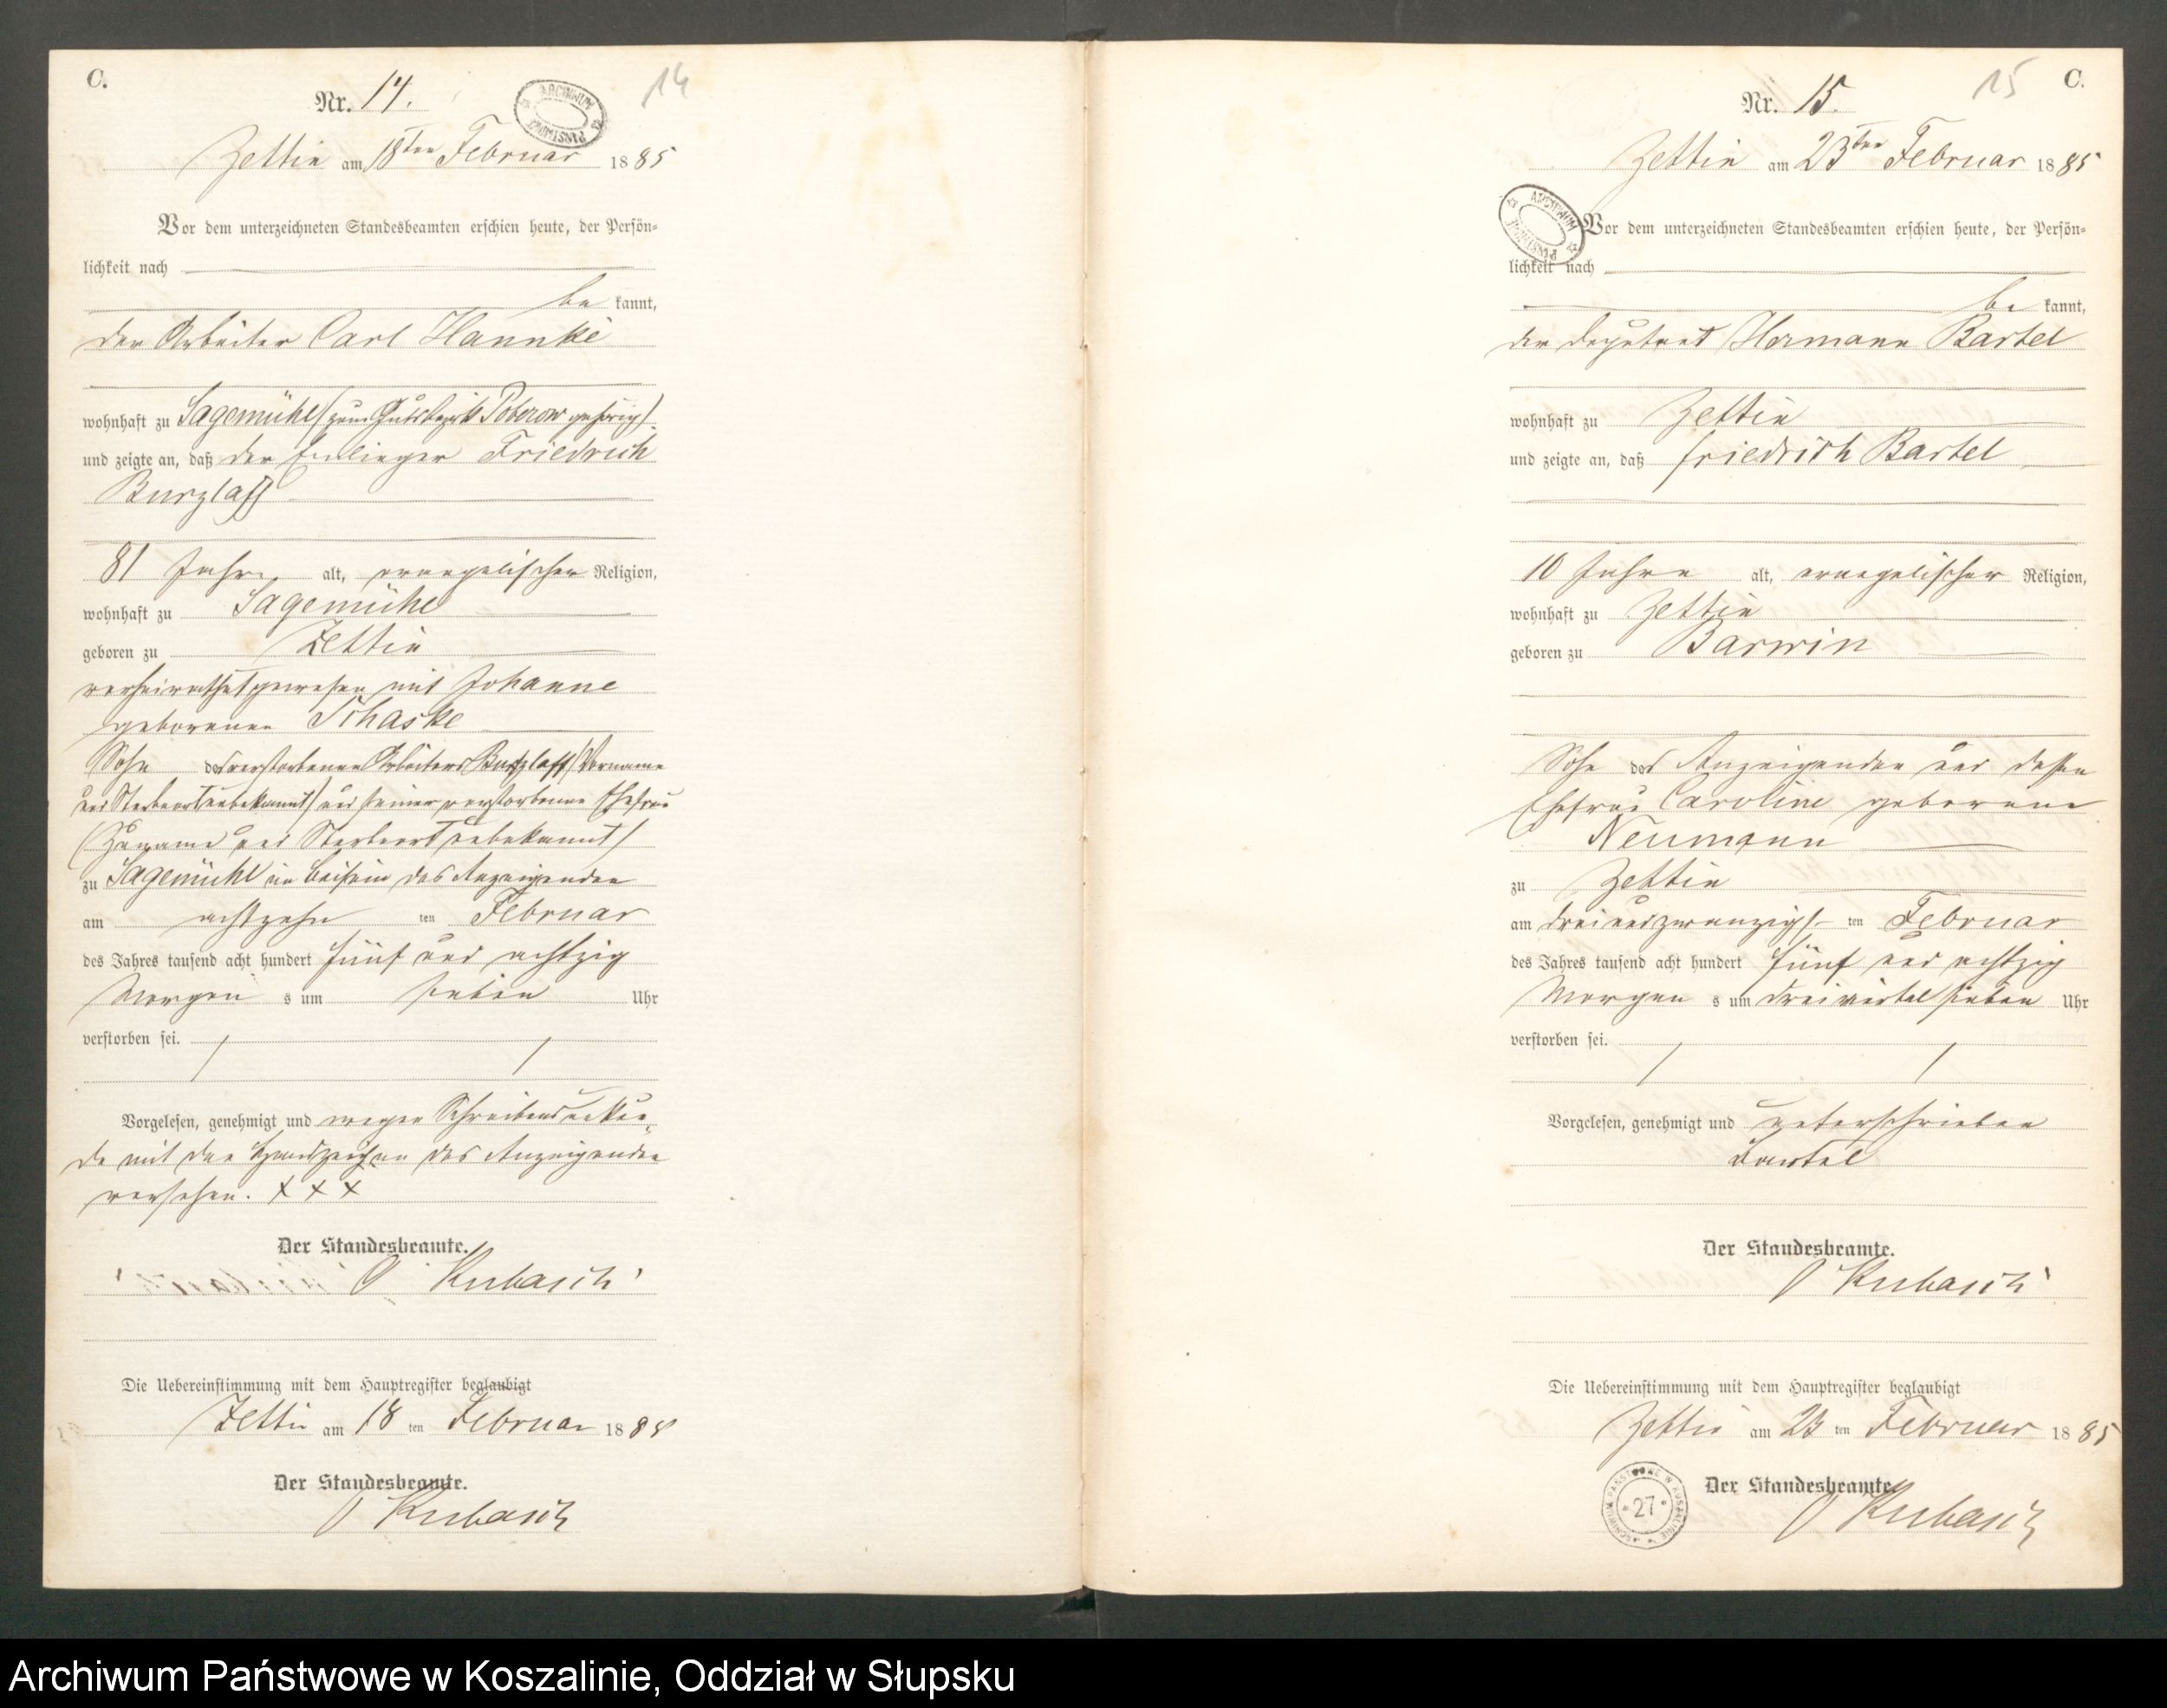 C.
Nr. 14.
14
ARCHIWUM PAŃSTWOWE
Zettin am 18ten Februar 1885
Vor dem unterzeichneten Standesbeamten erschien heute, der Persön-
lichkeit nach
be kannt,
der Arbeiter Carl Hannke
wohnhaft zu Sagemühl (zum Gutsbezirk Poberow gehörig)
und zeigte an, daß der Einlieger Friedrich
Burzlaff
81 Jahre alt, evangelischer Religion,
wohnhaft zu Sagemühl
geboren zu Zettin
verheirathet gewesen mit Johanne
geborenen Schaske
Sohn des verstorbenen Arbeiters Burzlaff (Vorname
und Sterbeort unbekannt) und seiner verstorbenen Ehefrau
(Zuname und Sterbeort unbekannt)
zu Sagemühl in Beisein des Anzeigenden
am achtzehn ten Februar
des Jahres tausend acht hundert fünf und achtzig
Morgen s um sieben Uhr
verstorben sei.
Vorgelesen, genehmigt und wegen Schreibensunkun-
de mit den Handzeichen des Anzeigenden
versehen. X X X
Der Standesbeamte.
Kubasch
Die Uebereinstimmung mit dem Hauptregister beglaubigt
Zettin am 18 ten Februar 1885
Der Standesbeamte.
Kubasch
15
C.
Nr. 15.
Zettin am 23ten Februar 1885
ARCHIWUM PAŃSTWOWE
Vor dem unterzeichneten Standesbeamten erschien heute, der Persön-
lichkeit nach
be kannt,
der Deputant Hermann Bartel
wohnhaft zu Zettin
und zeigte an, daß Friedrich Bartel
10 Jahre alt, evangelischer Religion,
wohnhaft zu Zettin
geboren zu Barwin
Sohn des Anzeigenden und dessen
Ehefrau Caroline geborene
Neumann
zu Zettin
am dreiundzwanzigs- ten Februar
des Jahres tausend acht hundert fünf und achtzig
Morgen s um dreiviertel sieben Uhr
verstorben sei.
Vorgelesen, genehmigt und unterschrieben
Bartel
Der Standesbeamte.
Kubasch
Die Uebereinstimmung mit dem Hauptregister beglaubigt
Zettin am 23 ten Februar 1885
Der Standesbeamte.
Kubasch
ARCHIWUM PAŃSTWOWE W KOSZALINIE
27
Archiwum Państwowe w Koszalinie, Oddział w Słupsku